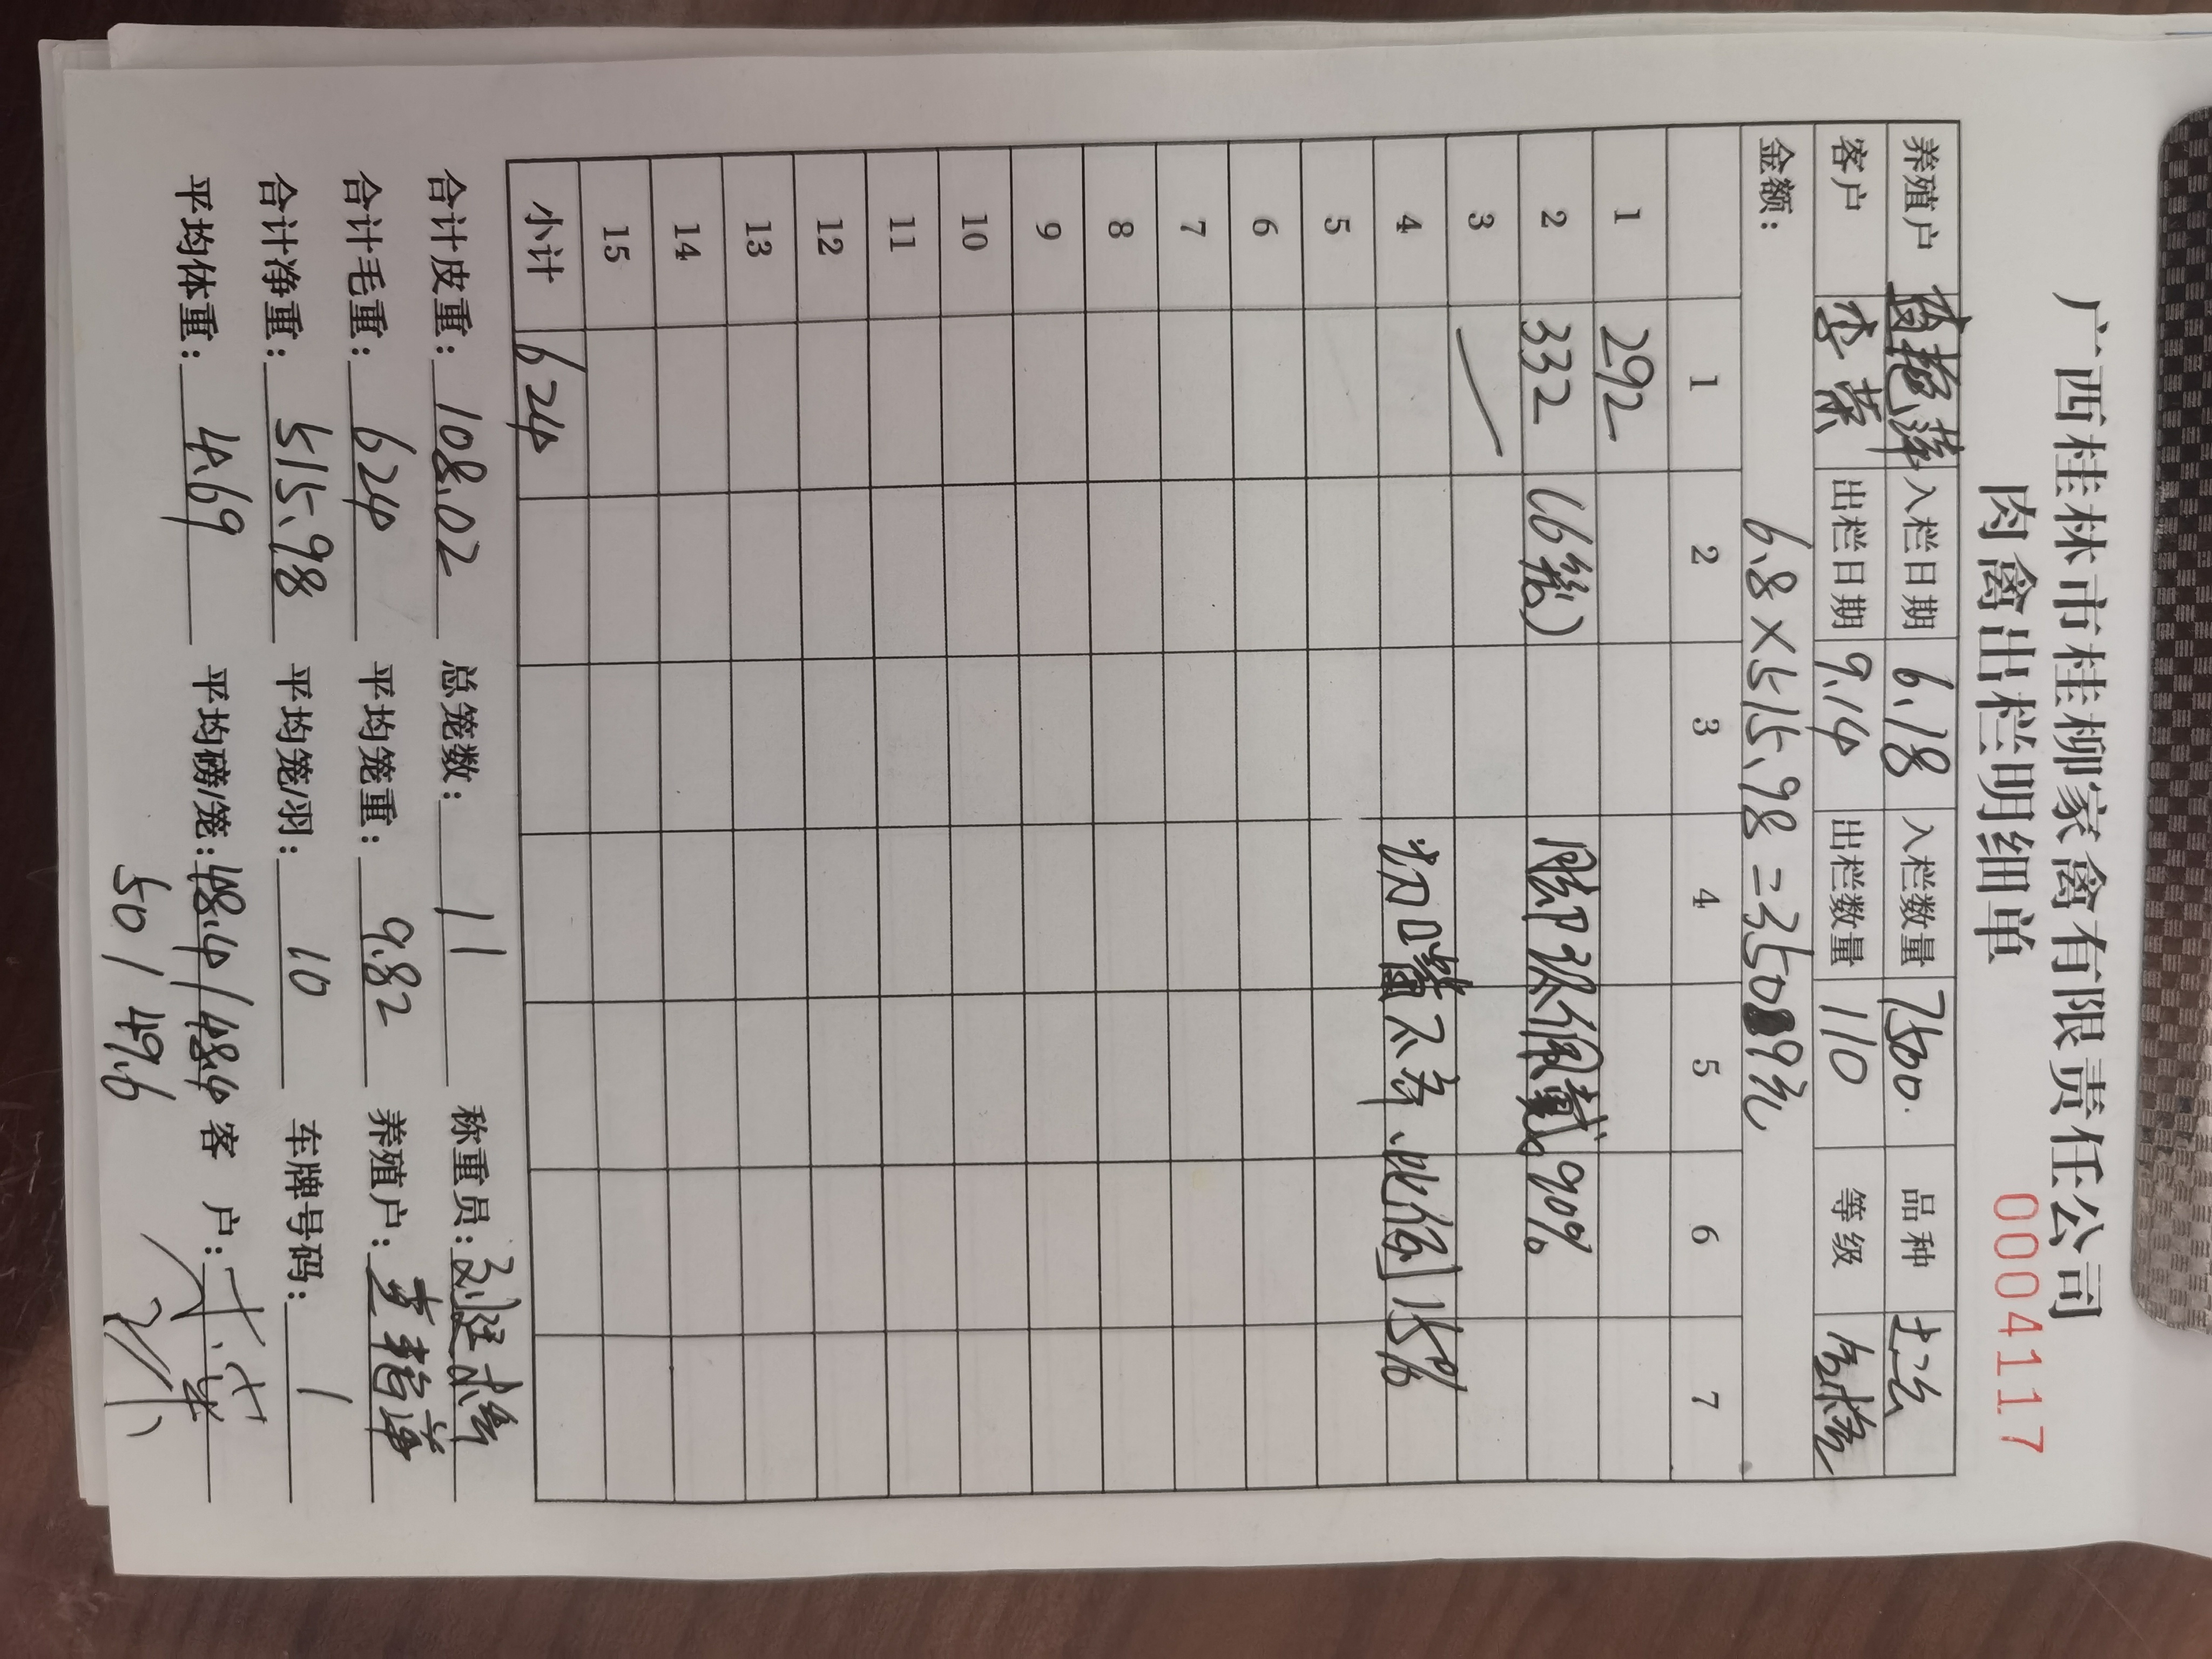 广西桂林市桂柳家禽有限责任公司
肉禽出栏明细单
0004117
养殖户 李艳萍 入栏日期 6.18 入栏数量 7500. 品种 土2
客户 李荣 出栏日期 9.14 出栏数量 110 等级
金额: 6.8×515.98=3509元
1 2 3 4 5 6 7
1 292
2 332 (6笼) 脚环佩戴90%
3
4 光口嘴不齐、比例15%
5
6
7
8
9
10
11
12
13
14
15
小计 624
合计皮重: 108.02 总笼数: 11 称重员:
合计毛重: 624 平均笼重: 9.82 养殖户:
合计净重: 515.98 平均笼/羽: 10 车牌号码: 1
平均体重: 4.69 平均磅/笼: 48.4/48.4 客 户:
50/49.6